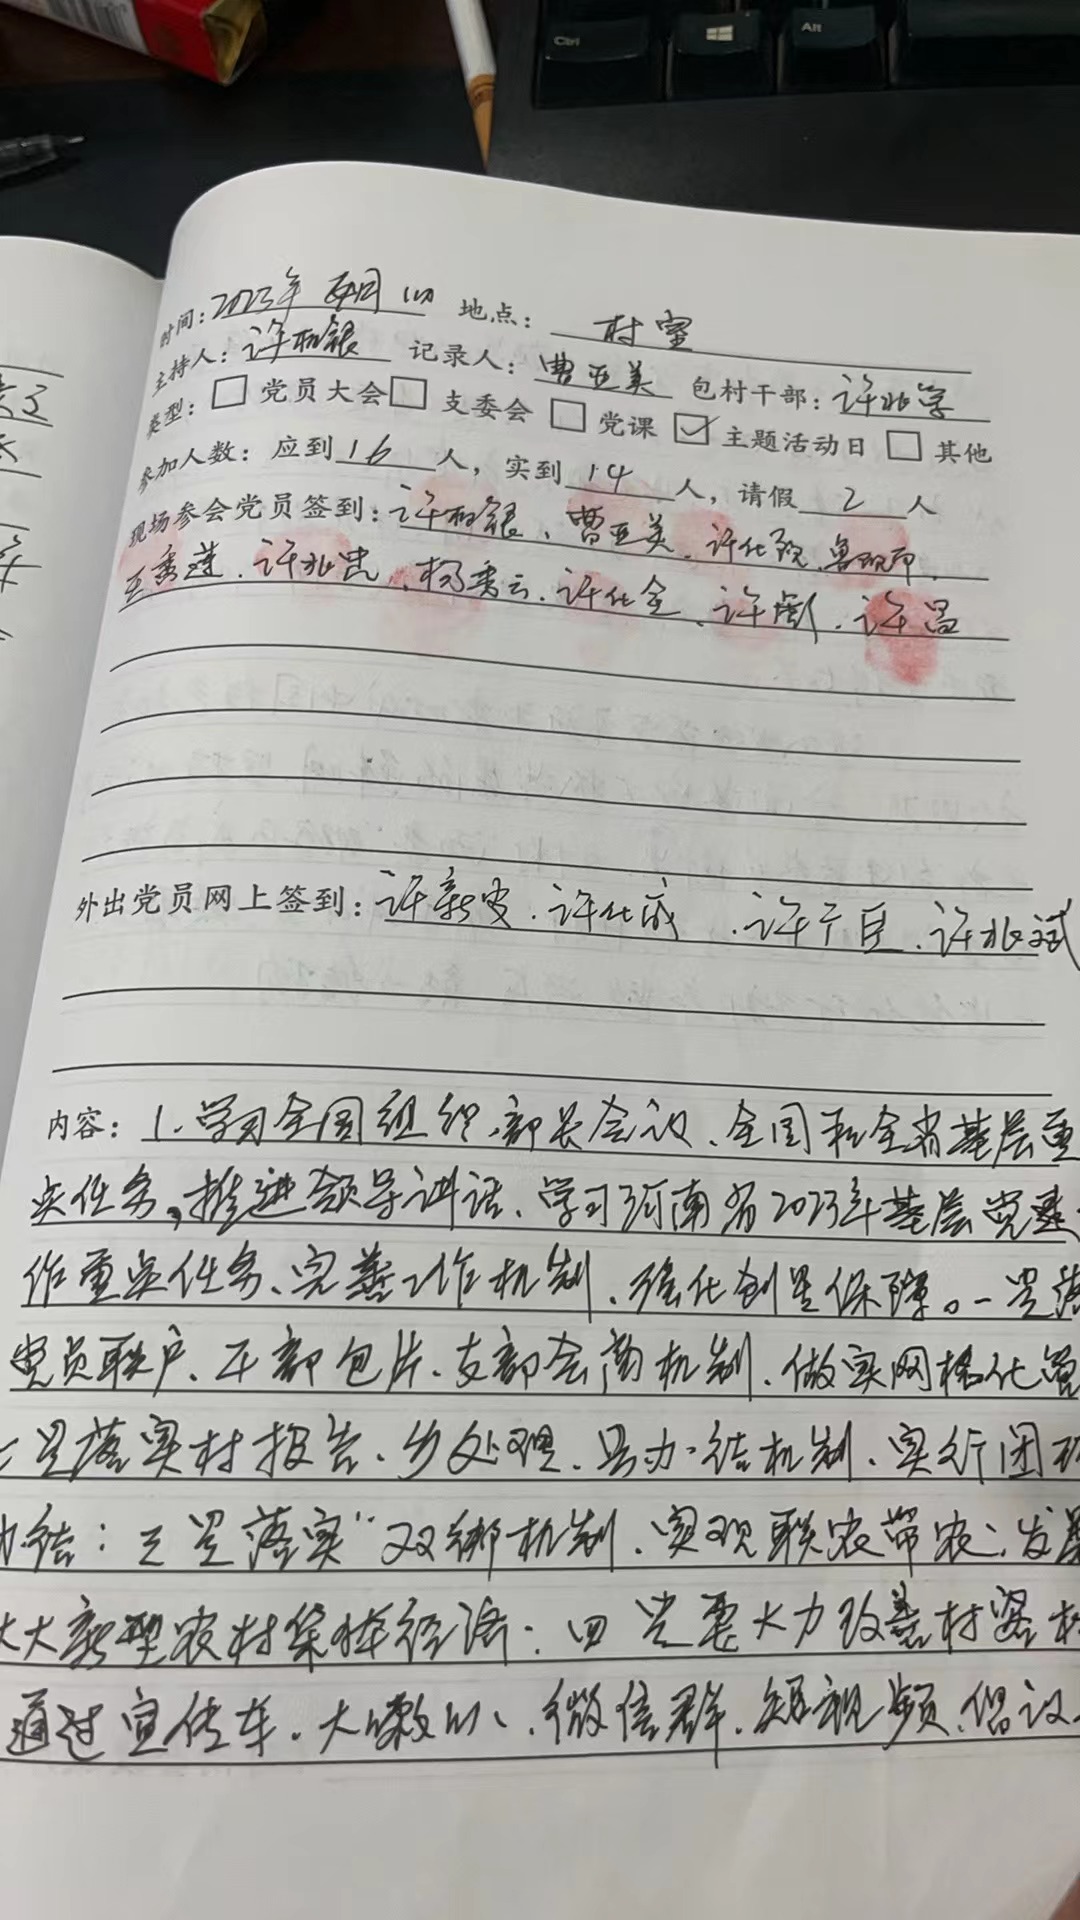 Ctrl
Alt
时间：2023年 月 日 地点：村室
主持人：许 银 记录人：曹亚美 包村干部：许兆学
类型：□ 党员大会 □ 支委会 □ 党课 ☑ 主题活动日 □ 其他
参加人数：应到 16 人，实到 14 人，请假 2 人
现场参会党员签到：许 银、曹亚美、许化
秀莲、许兆忠、杨秀云、许化全、许 、许昌
外出党员网上签到：许新 、许化成、许广臣、许兆斌
内容：1、学习全国组织部长会议、全国和全省基层重
点任务，推进领导讲话、学习河南省2023年基层党建
作重点任务、完善工作机制、强化创星保障。一是落
党员联户、干部包片、支部会商机制、做实网格化管
二是落实村报告、乡处理、县办结机制、实行闭环
办结：三是落实“双绑机制、实现联农带农；发展
大新型农村集体经济：四是要大力改善村容村
通过宣传车、大喇叭、微信群、短视频、倡议